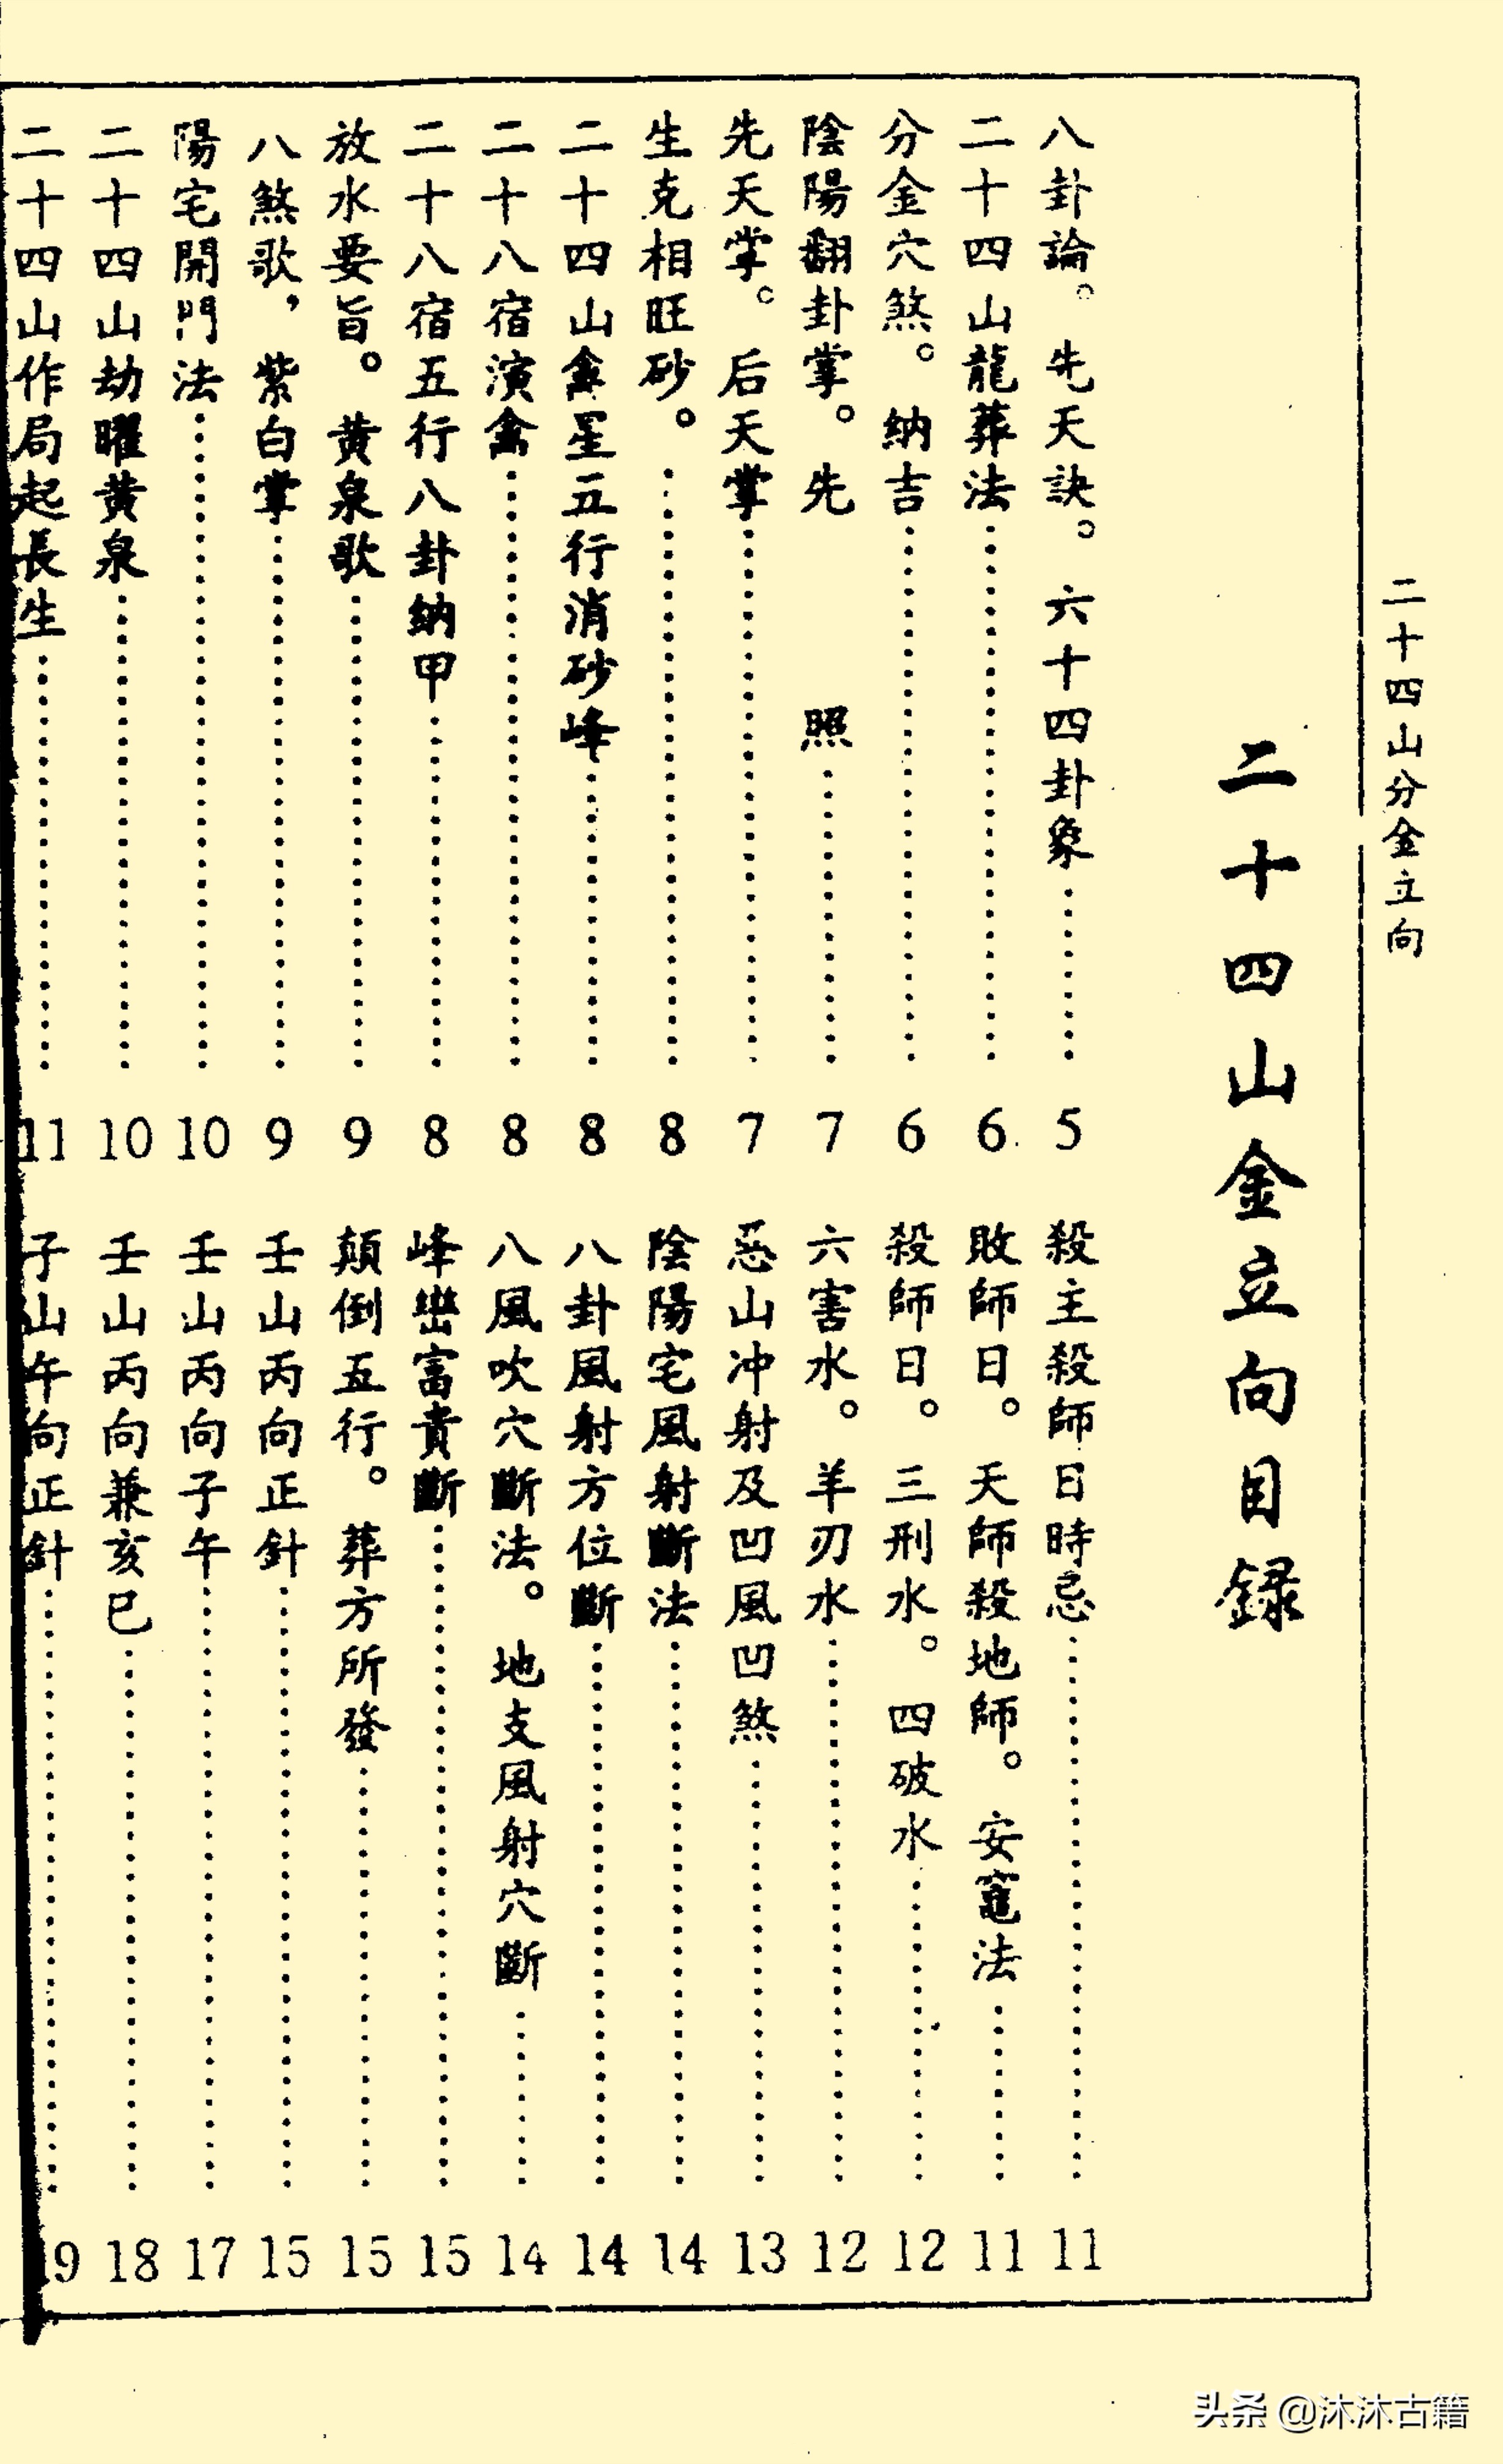 二十四山分金立向
二十四山金立向目録
八卦論。先天訣。六十四卦象……5
二十四山龍葬法……6
分金穴煞。納吉……6
陰陽翻卦掌。先　照……7
先天掌。后天掌……7
生克相旺砂。……8
二十四山禽星五行消砂峰……8
二十八宿演禽……8
二十八宿五行八卦納甲……8
放水要旨。黄泉歌……9
八煞歌，紫白掌……9
陽宅開門法……10
二十四山劫曜黄泉……10
二十四山作局起長生……11
殺主殺師日時忌……11
敗師日。天師殺地師。安竈法……11
殺師日。三刑水。四破水……12
六害水。羊刃水……12
惡山冲射及凹風凹煞……13
陰陽宅風射斷法……14
八卦風射方位斷……14
八風吹穴斷法。地支風射穴斷……14
峰巒富貴斷……15
顛倒五行。葬方所發……15
壬山丙向正針……15
壬山丙向子午……17
壬山丙向兼亥巳……18
子山午向正針……19
头条 @沐沐古籍